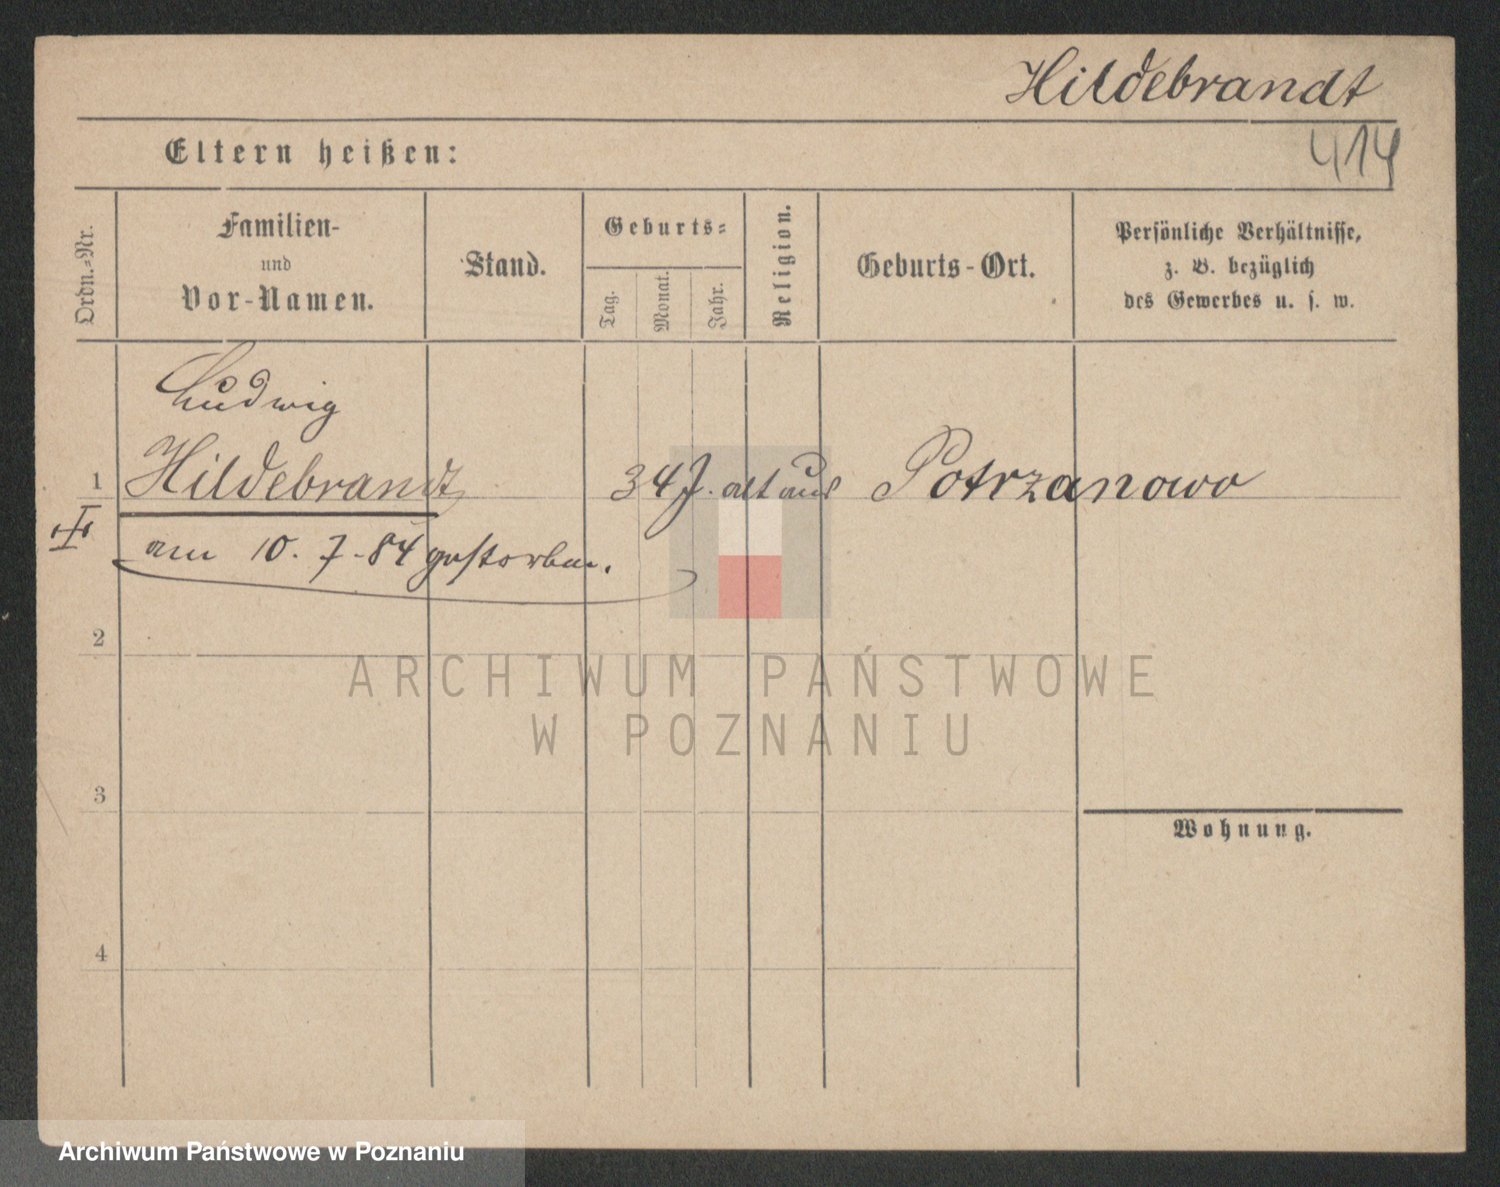 Hildebrandt
414
Eltern heißen:
Ordn.-Nr.
Familien-
und
Vor-Namen.
Stand.
Geburts-
Tag.
Monat.
Jahr.
Religion.
Geburts-Ort.
Persönliche Verhältnisse,
z. B. bezüglich
des Gewerbes u. s. w.
Ludwig
1 Hildebrandt 34 J. alt aus Potrzanowo
am 10. 7. 84 gestorben.
2
ARCHIWUM PAŃSTWOWE
W POZNANIU
3
Wohnung.
4
Archiwum Państwowe w Poznaniu